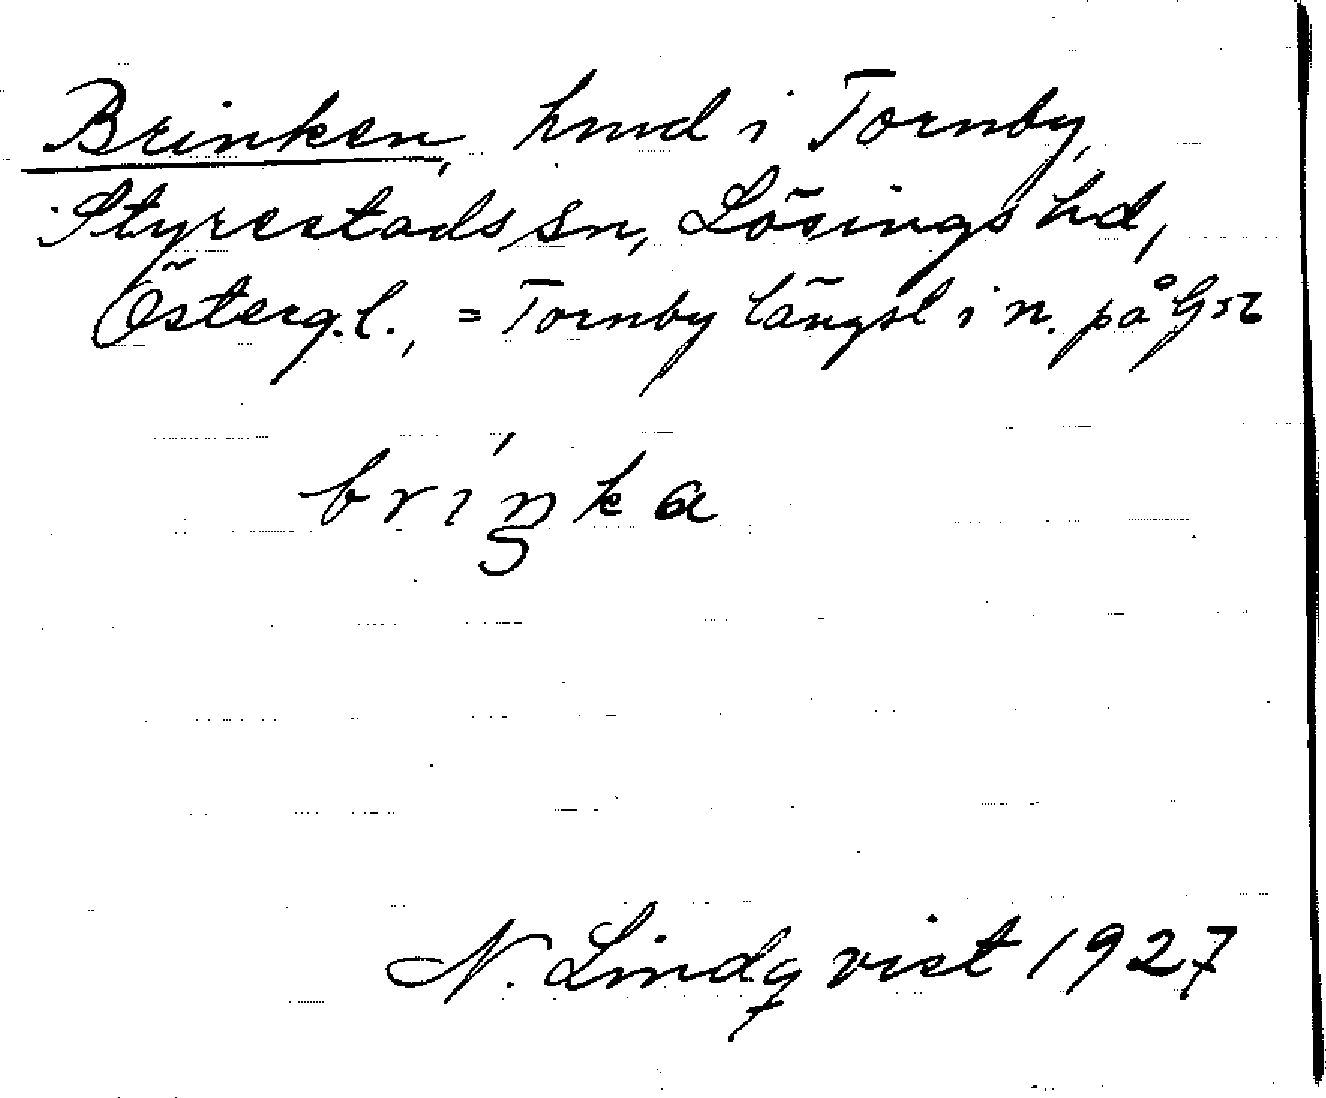 Brinken, hmd i Tornby,
Styrestads sn, Lösings hd,
Österg.l., = Tornby längst i n. på G56
briŋka
N. Lindqvist 1927